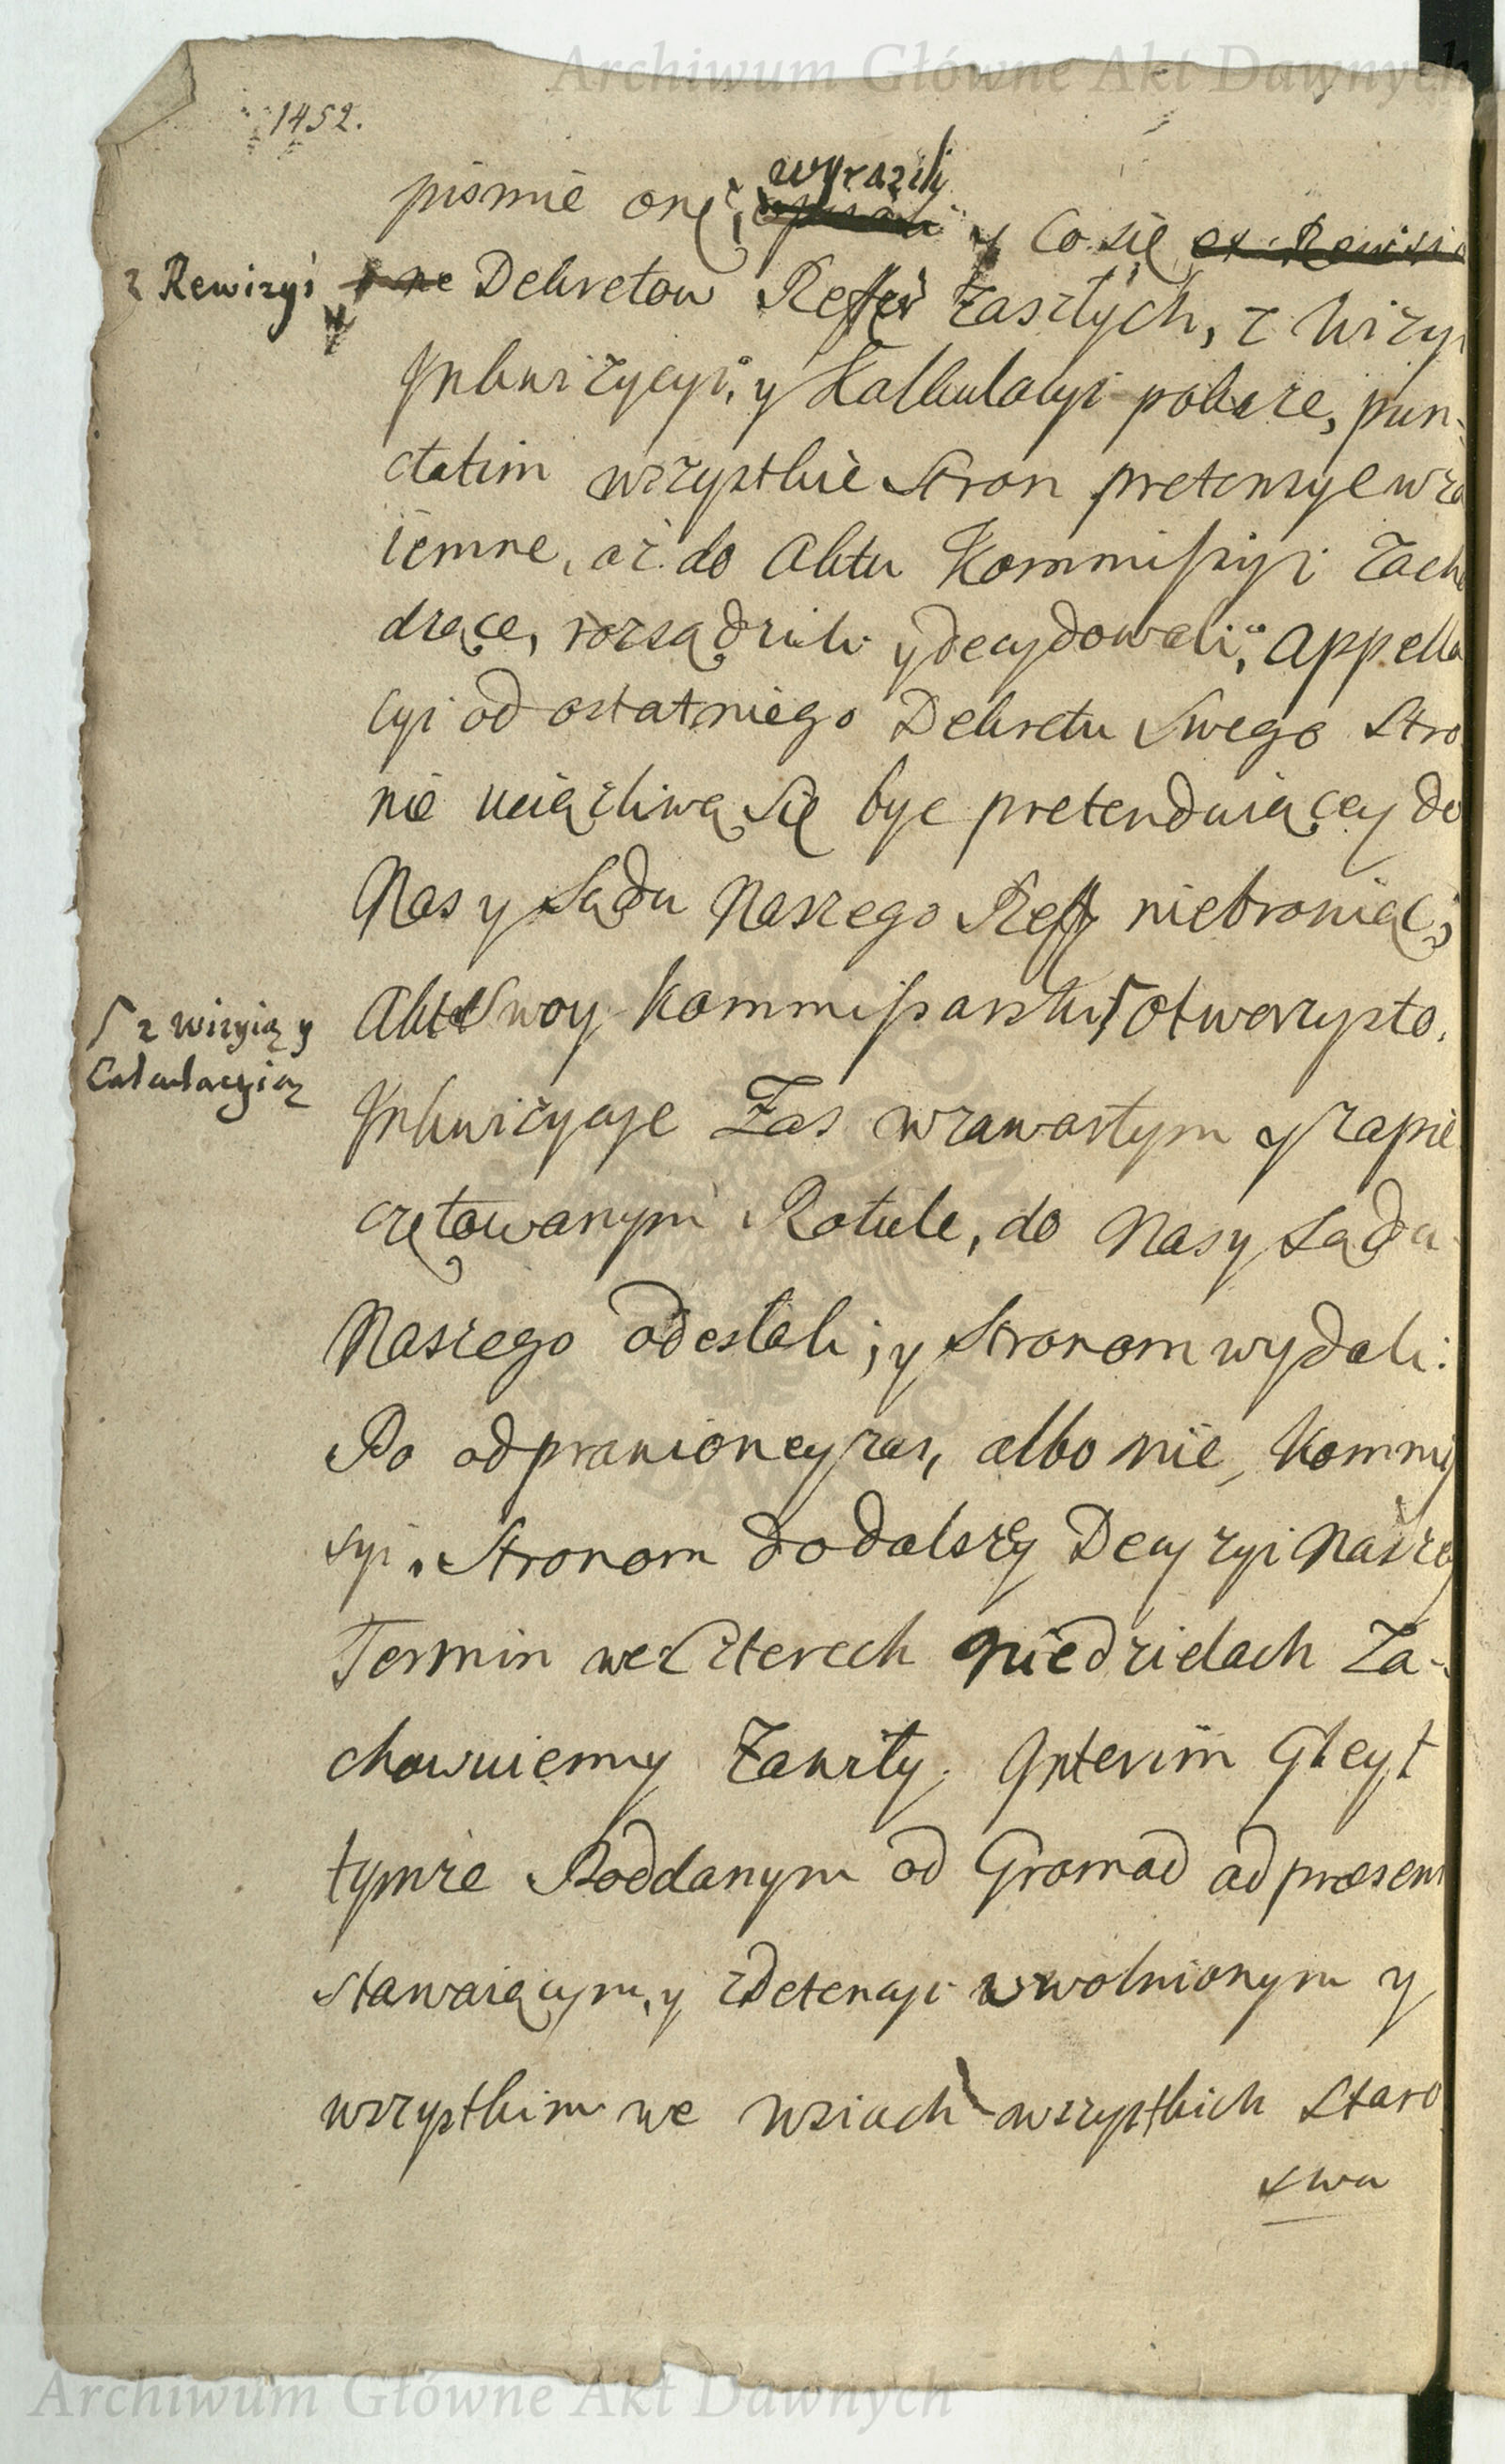 Archiwum Główne Akt Dawnych
1452.
pismie onę wyrazili y Co się ex Rewisi
z Rewizyi ne Dekretow Reffer Zaszłych, z Wizyi
Inkwizycyi, y Kalkulacyi pokaże, pun-
ctatim wszystkie Stron pretensye wza
iemne, aż do Aktu Kommissyi Zacho
dzące, rozsądzili y decydowali, Appella
cyi od ostatniego Dekretu Swego Stro
nie uciążliwą się byc pretenduiącey do
Nas y Sądu Naszego Reff niebroniąc;
Akt Swoy Kommissarski otworzysto,
z wizyią y
Calculacyią
Inkwizycye Zas w zawartym y zapie
czętowanym Rotule, do Nas y Sądu
Naszego odesłali; y Stronom wydali:
Po odprawioney zas, albo nie, Kommis
syi, Stronom do dalszey Decyzyi Naszey
Termin we Czterech Niedzielach Za-
chowuiemy Zawity. Interim Gleyt
tymże Poddanym od Gromad ad præsens
stawaiącym, y z Detencyi uwolnionym y
wszystkim we wsiach wszystkich Staro
stwa
Archiwum Główne Akt Dawnych